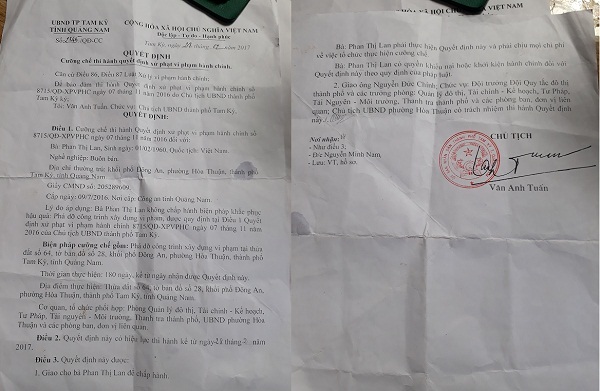 UBND TP TAM KỲ
TỈNH QUẢNG NAM
CỘNG HÒA XÃ HỘI CHỦ NGHĨA VIỆT NAM
Độc lập - Tự do - Hạnh phúc
/QĐ-CC
Tam Kỳ, ngày 2017
QUYẾT ĐỊNH
Cưỡng chế thi hành quyết định xử phạt vi phạm hành chính.
Căn cứ Điều 86, Điều 87 Luật Xử lý vi phạm hành chính.
Để bảo đảm thi hành Quyết định xử phạt vi phạm hành chính số
8715/QĐ-XPVPHC ngày 07 tháng 11 năm 2016 do Chủ tịch UBND thành phố
Tam Kỳ ký.
Tôi: Văn Anh Tuấn. Chức vụ: Chủ tịch UBND thành phố Tam Kỳ.
QUYẾT ĐỊNH:
Điều 1. Cưỡng chế thi hành Quyết định xử phạt vi phạm hành chính số
8715/QĐ-XPVPHC ngày 07 tháng 11 năm 2016 đối với:
Bà: Phan Thị Lan, Sinh ngày: 01/02/1960, Quốc tịch: Việt Nam.
Nghề nghiệp: Buôn bán.
Địa chỉ thường trú: khối phố Đông An, phường Hòa Thuận, thành phố
Tam Kỳ, tỉnh Quảng Nam
Giấy CMND số: 205289609.
Cấp ngày: 09/7/2016. Nơi cấp: Công an tỉnh Quảng Nam
Lý do áp dụng: Bà Phan Thị Lan không chấp hành biện pháp khắc phục
hậu quả: Phá dỡ công trình xây dựng vi phạm, được quy định tại Điều 1 Quyết
định xử phạt vi phạm hành chính 8715/QĐ-XPVPHC ngày 07 tháng 11 năm
2016 của Chủ tịch UBND thành phố Tam Kỳ.
Biện pháp cưỡng chế gồm: Phá dỡ công trình xây dựng vi phạm tại thửa
đất số 64, tờ bản đồ số 28, khối phố Đông An, phường Hòa Thuận, thành phố
Tam Kỳ, tỉnh Quảng Nam.
Thời gian thực hiện: 180 ngày, kể từ ngày nhận được Quyết định này.
Địa điểm thực hiện: Thửa đất số 64, tờ bản đồ số 28, khối phố Đông An,
phường Hòa Thuận, thành phố Tam Kỳ, tỉnh Quảng Nam.
Cơ quan, tổ chức phối hợp: Phòng Quản lý đô thị, Tài chính - Kế hoạch,
Tư Pháp, Tài nguyên - Môi trường, Thanh tra thành phố, UBND phường Hòa
Thuận và các phòng ban, đơn vị liên quan.
Điều 2. Quyết định này có hiệu lực thi hành kể từ ngày tháng năm
2017.
Điều 3. Quyết định này được:
1. Giao cho bà Phan Thị Lan để chấp hành.
HÒA XÃ HỘI CHỦ NGHĨA VIỆT NAM
Bà: Phan Thị Lan phải thực hiện Quyết định này và phải chịu mọi chi phí
về việc tổ chức thực hiện cưỡng chế.
Bà: Phan Thị Lan có quyền khiếu nại hoặc khởi kiện hành chính đối với
Quyết định này theo quy định của pháp luật.
2. Giao ông Nguyễn Đức Chính, Chức vụ: Đội trưởng Đội Quy tắc đô thị
thành phố và các trưởng phòng: Quản lý đô thị, Tài chính - Kế hoạch, Tư Pháp,
Tài Nguyên - Môi trường, Thanh tra thành phố và các phòng ban, đơn vị liên
quan; Chủ tịch UBND phường Hòa Thuận có trách nhiệm thi hành Quyết định
này./.
Nơi nhận:
- Như điều 3;
- Đ/c Nguyễn Minh Nam;
- Lưu: VT, hồ sơ.
CHỦ TỊCH
Văn Anh Tuấn